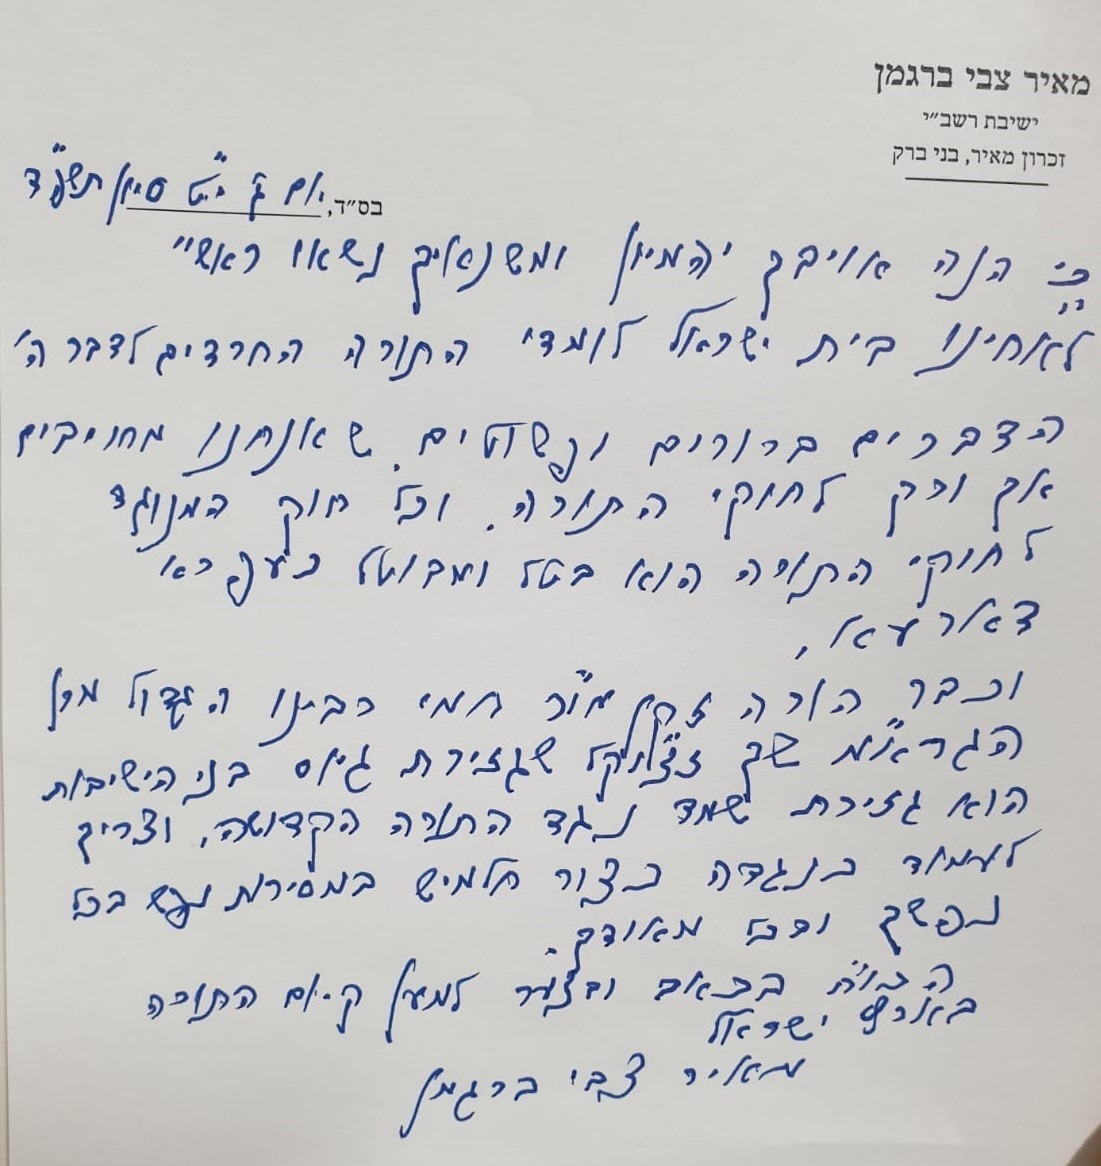 מאיר צבי ברגמן
ישיבת רשב״י
זכרון מאיר, בני ברק
בס״ד, יום ג׳ י״ט סיון תשע״ד
כי הנה אויבך יהמיון ומשנאיך נשאו ראש״
לאחינו בית ישראל לומדי התורה החרדים לדבר ה׳
הדברים ברורים ופשוטים. שאנחנו מחויבים
אך ורק לחוקי התורה. וכל חוק המנוגד
לחוקי התורה הוא בטל ומבוטל כעפרא
דארעא,
וכבר הורה זקן מו״ר חמי רבינו הגדול מרן
הגרא״מ שך זצ״ל שגזירת גיוס בני הישיבות
הוא גזירת שמד נגד התורה הקדושה, וצריך
לעמוד כנגדה כצור חלמיש במסירות נפש בכל
נפשך ובכל מאודך.
הכו״ח בכאב ובצער למען קיום התורה
בארץ ישראל
מאיר צבי ברגמן